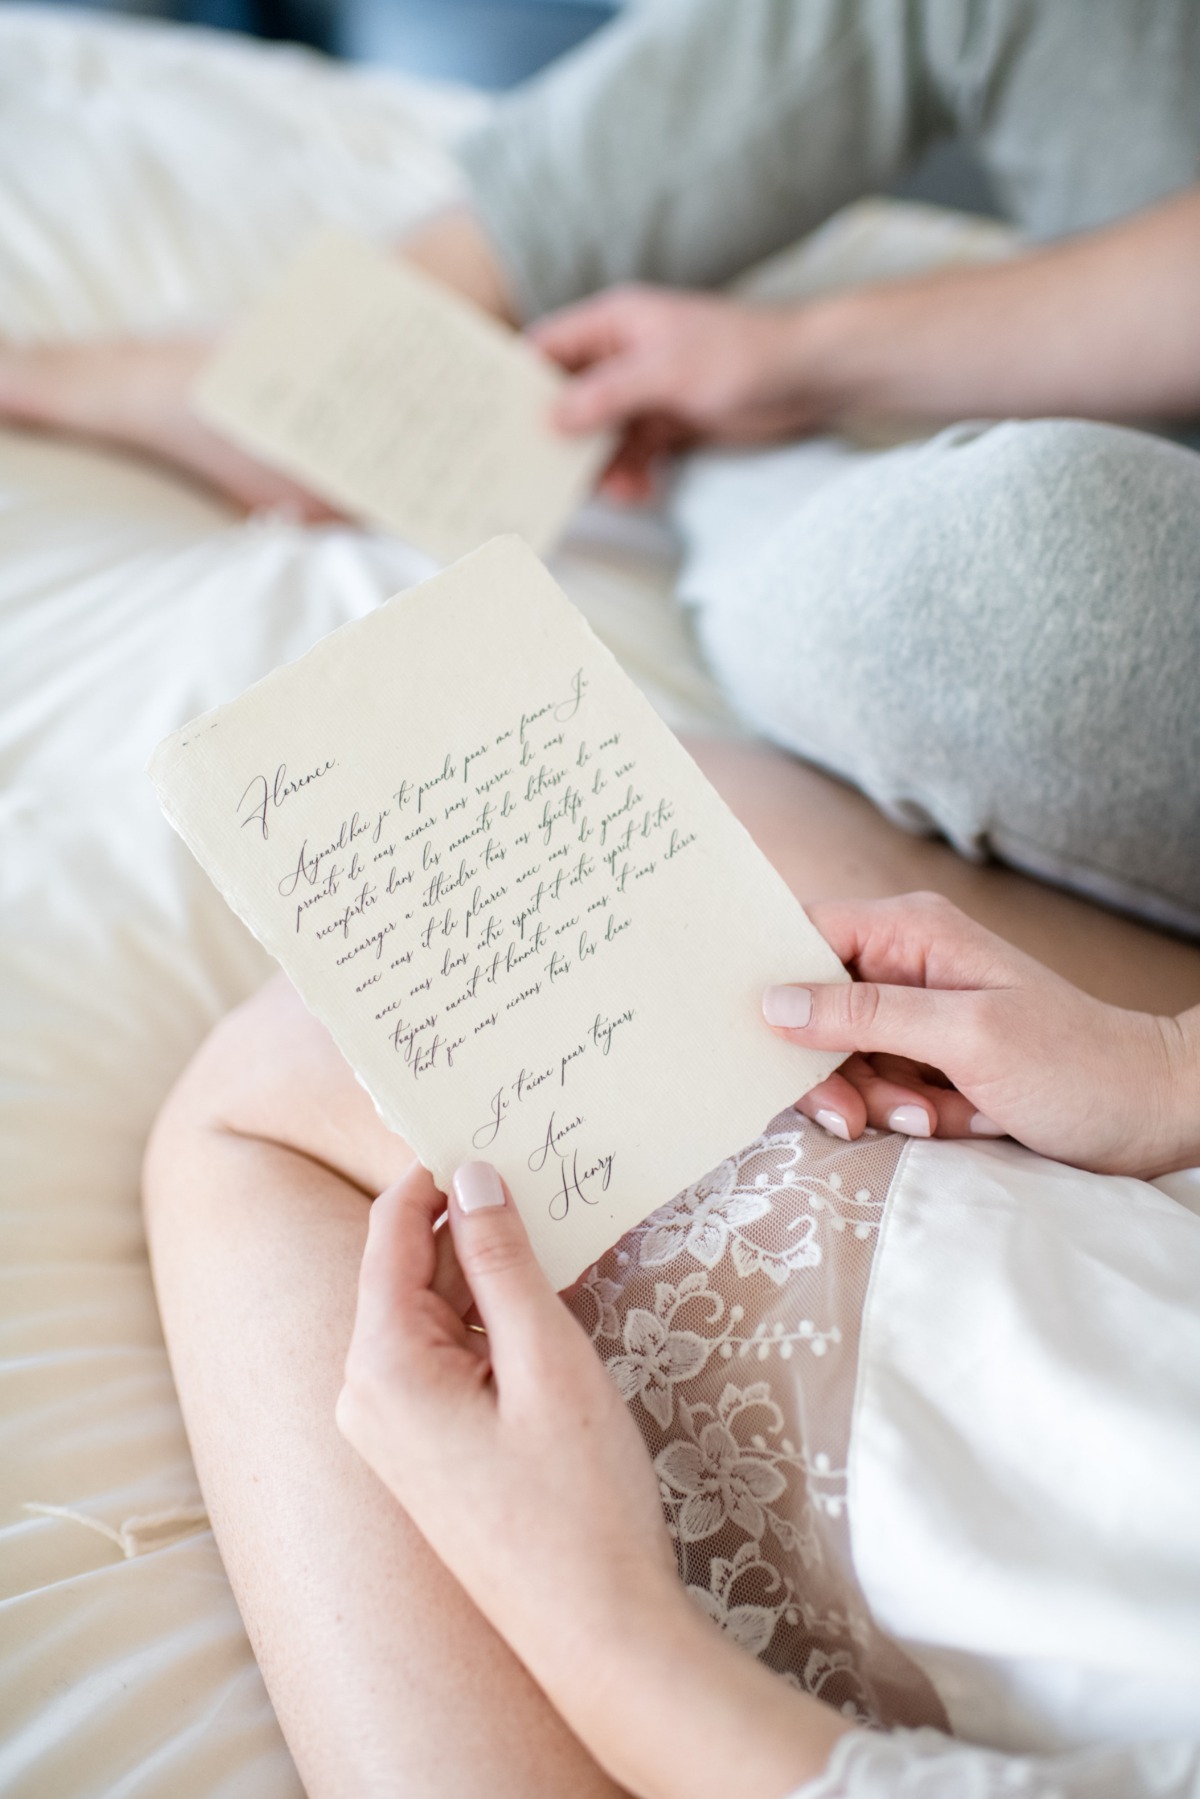 Florence,
Aujourd'hui je te prends pour ma femme Je
promets de vous aimer sans reserve, de vous
reconforter dans les moments de détresse, de vous
encourager a atteindre tous vos objectifs, de rire
avec vous et de pleurer avec vous, de grandir
avec vous dans votre esprit et votre esprit, d'etre
toujours ouvert et honnete avec vous, et vous cherir
tant que nous vivrons tous les deux
Je t'aime pour toujours.
Amour,
Henry